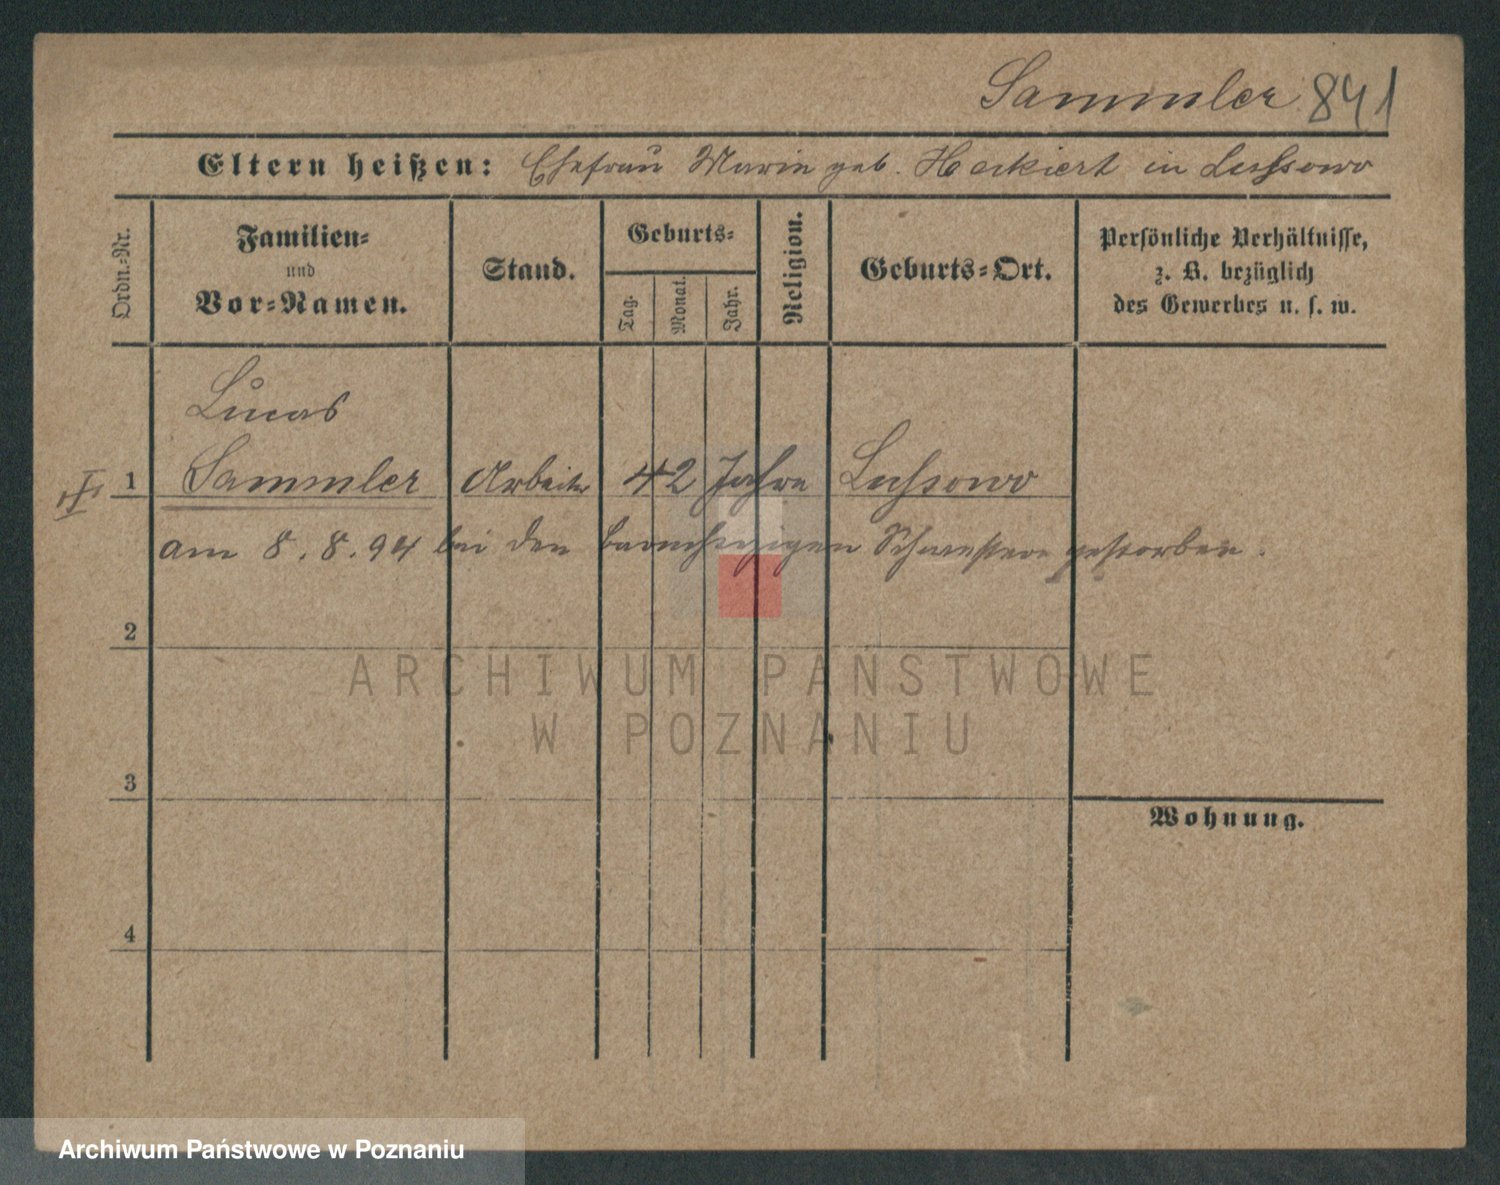 Sammler 841
Eltern heißen: Ehefrau Marie geb. Heckiert in Lussowo
Ordn.-Nr.
Familien-
und
Vor-Namen.
Stand.
Geburts-
Tag.
Monat.
Jahr.
Religion.
Geburts-Ort.
Persönliche Verhältnisse,
z. B. bezüglich
des Gewerbes u. s. w.
Lucas
1 Sammler Arbeiter 42 Jahre Lussowo
am 8.8.94 bei den barmherzigen Schwestern gestorben.
2
ARCHIWUM PAŃSTWOWE
W POZNANIU
3
Wohnung.
4
Archiwum Państwowe w Poznaniu